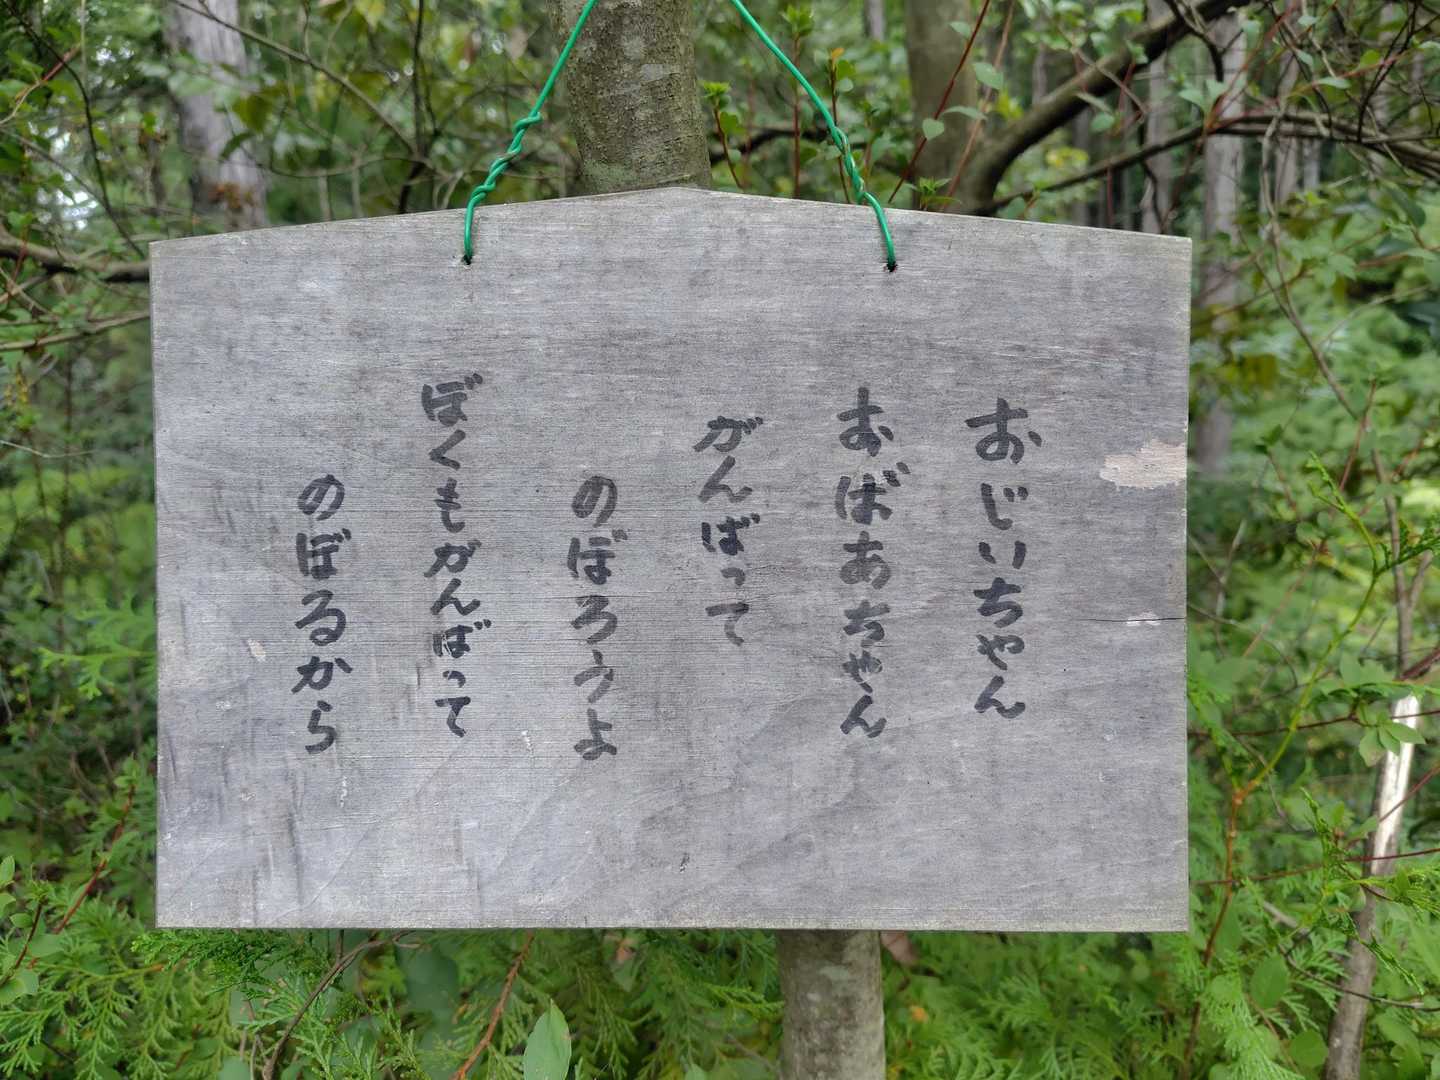 おじいちゃん
おばあちゃん
がんばって
のぼろうよ
ぼくもがんばって
のぼるから